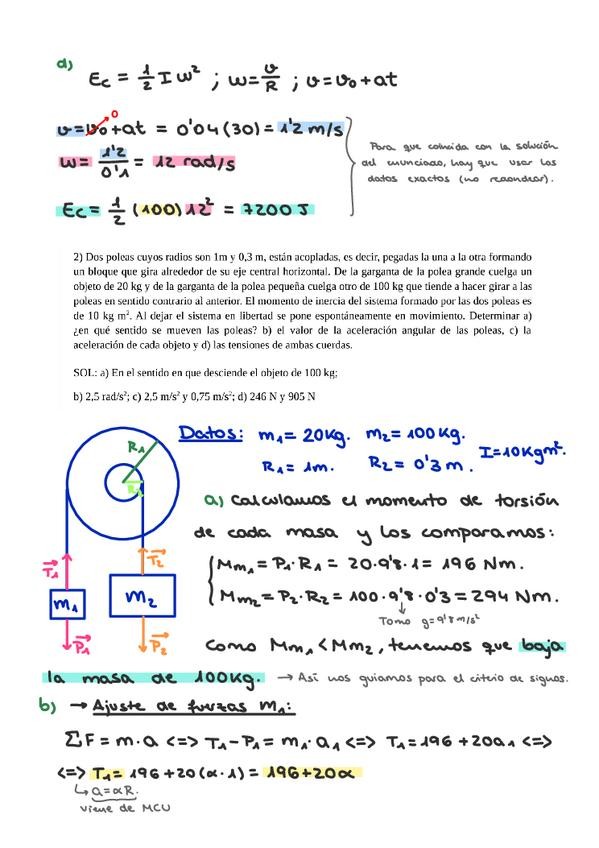 d)
Ec = 1/2 I ω² ; ω = v/R ; v = v₀ + at
v = v₀ + at = 0'04 (30) = 1'2 m/s
0
ω = 1'2/0'1 = 12 rad/s
Ec = 1/2 (100) 12² = 7200 J
Para que coincida con la solución
del enunciado, hay que usar los
datos exactos (no redondear).
2) Dos poleas cuyos radios son 1m y 0,3 m, están acopladas, es decir, pegadas la una a la otra formando
un bloque que gira alrededor de su eje central horizontal. De la garganta de la polea grande cuelga un
objeto de 20 kg y de la garganta de la polea pequeña cuelga otro de 100 kg que tiende a hacer girar a las
poleas en sentido contrario al anterior. El momento de inercia del sistema formado por las dos poleas es
de 10 kg m². Al dejar el sistema en libertad se pone espontáneamente en movimiento. Determinar a)
¿en qué sentido se mueven las poleas? b) el valor de la aceleración angular de las poleas, c) la
aceleración de cada objeto y d) las tensiones de ambas cuerdas.
SOL: a) En el sentido en que desciende el objeto de 100 kg;
b) 2,5 rad/s²; c) 2,5 m/s² y 0,75 m/s²; d) 246 N y 905 N
Datos: m₁ = 20 Kg. m₂ = 100 Kg.
R₁ = 1m. R₂ = 0'3 m.
I = 10 Kgm².
R₁
T₁
T₂
m₁
m₂
P₁
P₂
a) Calculamos el momento de torsión
de cada masa y los comparamos:
Mm₁ = P₁·R₁ = 20·9'8·1 = 196 Nm.
Mm₂ = P₂·R₂ = 100·9'8·0'3 = 294 Nm.
Tomo g = 9'8 m/s²
Como Mm₁ < Mm₂, tenemos que baja
la masa de 100Kg. → Así nos guiamos para el criterio de signos.
b) → Ajuste de fuerzas M₁:
ΣF = m·a <=> T₁ - P₁ = m₁·a₁ <=> T₁ = 196 + 20a₁ <=>
<=> T₁ = 196 + 20 (α·1) = 196 + 20α
↳ a = αR.
viene de MCU